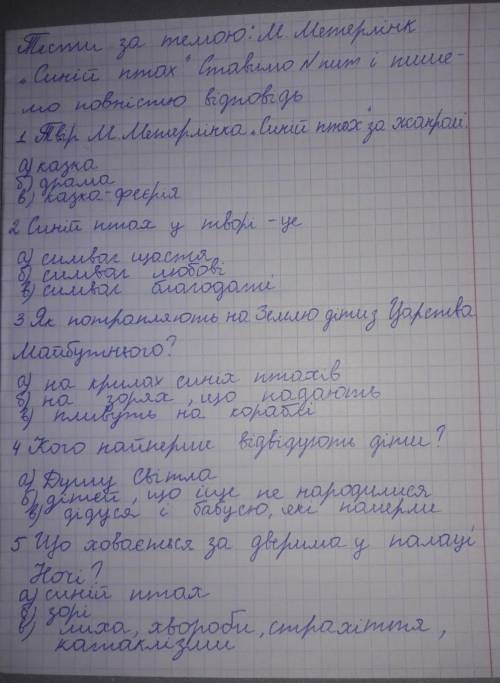 Тести за темою: М. Метерлінк
„Синій птах" Ставимо N пит і пише-
мо повністю відповідь
1 Твір М. Метерлінка „Синій птах" за жанром:
а) казка
б) драма
в) казка-феєрія
2 Синій птах у творі - це
а) символ щастя
б) символ любові
в) символ благодаті
3 Як потрапляють на Землю діти з Царства
Майбутнього?
а) на крилах синіх птахів
б) на зорях, що падають
в) пливуть на кораблі
4 Кого найперше відвідують діти?
а) Душу Світла
б) дітей, що іще не народилися
в) дідуся і бабусю, які померли
5 Що ховається за дверима у палаці
Ночі?
а) синій птах
б) зорі
в) лиха, хвороби, страхіття,
катаклізми